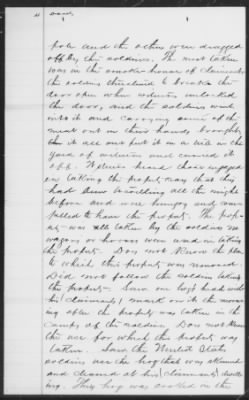 pole and the other were dragged
off by the soldiers. The meat taken
was in the smoke house of claimant
the soldiers threatened to break the
door open when witness unlocked
the door, and the soldiers went
into it and carrying some of the
meat out in their hands brought
it all out put it in a pile in the
yard of witness and carried it
off. Witness heard those engaged
in taking the property say that they
had been travelling all the night
before and were hungry and com-
pelled to have the property. The prop-
erty was all taken by the soldiers no
wagons or horses were used in taking
the property. Does not know the place
to which this property was removed
Did not follow the soldiers taking
the property. Saw one hog's head with
his (claimant's) mark on it the morn-
ing after the property was taken in the
camps of the soldiers. Does not know
the use for which this property was
taken. Saw the United States
soldiers use the hog that was skinned
and cleaned at his (claimant's) dwell-
ing. This hog was cooked in the